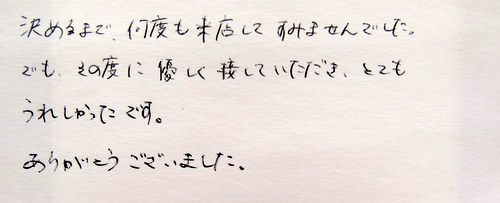 決めるまで、何度も来店してすみませんでした。
でも、その度に優しく接していただき、とても
うれしかったです。
ありがとうございました。